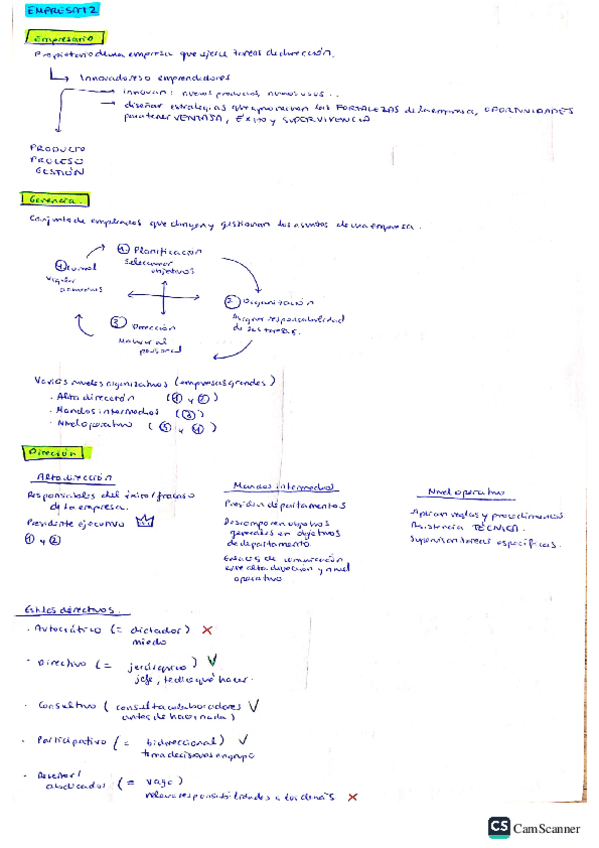 EMPRESA T2
Empresario
Propietario de una empresa que ejerce tareas de dirección.
Innovadores o emprendedores
innovan: nuevos productos, nuevos usos..
diseñar estrategias que aprovechan las FORTALEZAS de la empresa, OPORTUNIDADES
para tener VENTAJA, ÉXITO y SUPERVIVENCIA
PRODUCTO
PROCESO
GESTIÓN
Gerencia.
Conjunto de empleados que dirigen y gestionan los asuntos de una empresa.
1. Planificación
seleccionar
objetivos
4 Control
vigilar
2. Organización
Asignar responsabilidad
de las tareas.
3 Dirección
personal
Varios niveles organizativos (empresas grandes)
· Alta dirección (1 y 2)
· Mandos intermedios (3)
· Nivel operativo (3 y 4)
Dirección
Alta dirección
Responsables del éxito/fracaso
de la empresa.
Presidente ejecutivo
1 y 2
Mandos intermedios
Presiden departamentos
Descomponen objetivos
generales en objetivos
de departamento
Enlaces de comunicación
entre alta dirección y nivel
operativo
Nivel operativo
Aplican reglas y procedimientos
Asistencia TÉCNICA.
Supervisan tareas específicas.
Estilos directivos.
· Autocrático (= dictador) X
miedo
· Directivo (= jerárquico) V
jefe, te dice qué hacer.
· Consultivo (consulta colaboradores V
antes de hacer nada)
· Participativo (= bidireccional) V
toma decisiones en grupo
· Desertor/
abdicador (= vago)
releva responsabilidades a los demás X
CS CamScanner